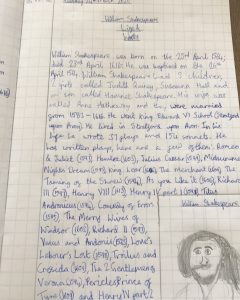 William Shakespeare
William Shakespeare was born on the 23rd April 1564,
died 23rd April 1616. He was baptised on the 26th
April 1564. William Shakespeare had 3 children,
2 girls called Judith Quiney, Susanna Hall and
a son called Hamnet Shakespeare. His wife was
called Anne Hathaway and they were married
from 1582-1616. He went King Edward VI School (Stratford
upon Avon). He lived in Stratford upon Avon. In his
life he wrote 37 plays and 154 sonnets. He
has written plays, here are a few of them: Romeo
& Juliet, Hamlet, Julius Caesar, Midsummer
Nights Dream, King Lear, The Merchant, The
Taming of the Shrew, As you Like it, Richard
III, Henry VIII, Henry IV part 1, Titus
Andronicus, Comedy of Errors
The Merry Wives of
Windsor, Richard II,
Venus and Adonis, Love's
Labour's Lost, Troilus and
Cressida, The 2 Gentlemen of
Verona, Pericles Prince of
Tyre and Henry IV part 2
William Shakespeare